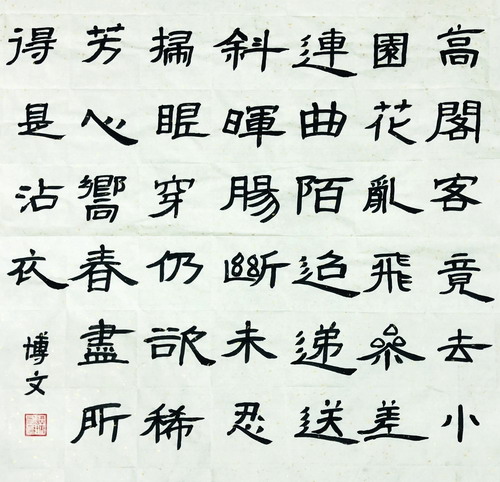 高閣客竟去小
園花亂飛參差
連曲陌迢遞送
斜暉腸斷未忍
掃眼穿仍欲稀
芳心嚮春盡所
得是沾衣
博文